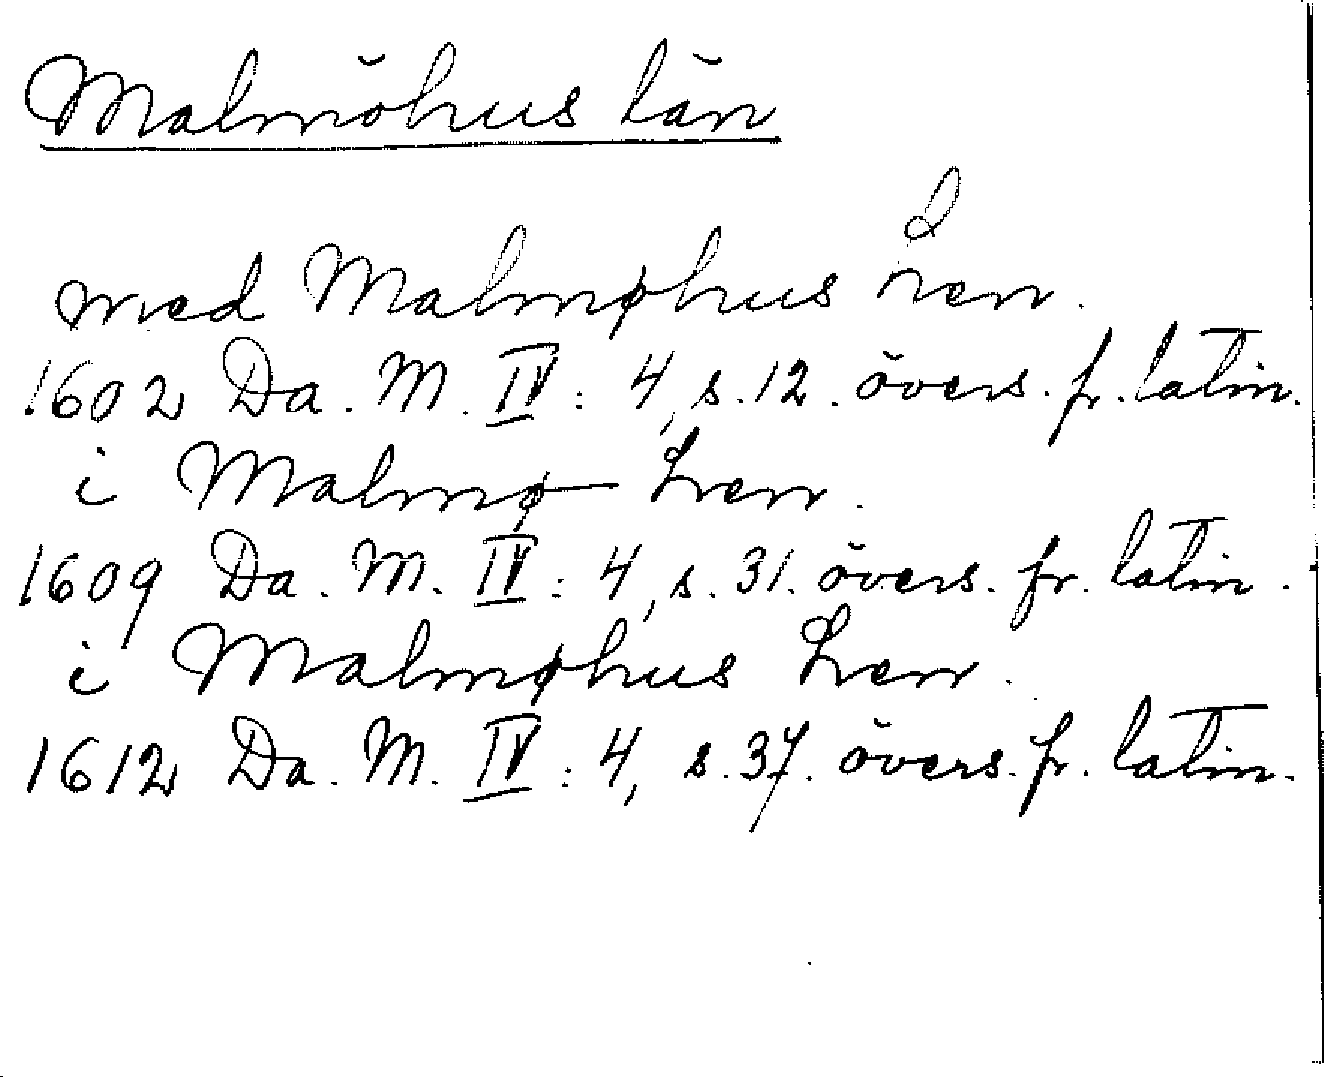 Malmöhus län
med Malmøhus Len.
1602 Da. M. IV: 4, s. 12. övers. fr. latin.
i Malmø Len.
1609 Da. M. IV: 4, s. 31. övers. fr. latin.
i Malmøhus Len.
1612 Da. M. IV: 4, s. 37. övers. fr. latin.